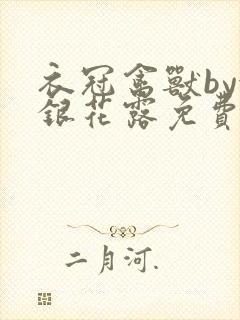 衣冠禽獸by
銀花露免費
二月河.